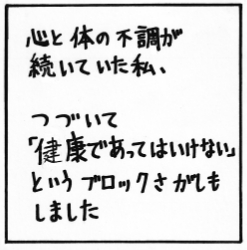 心と体の不調が
続いていた私、
つづいて
「健康であってはいけない」
というブロックさがしも
しました